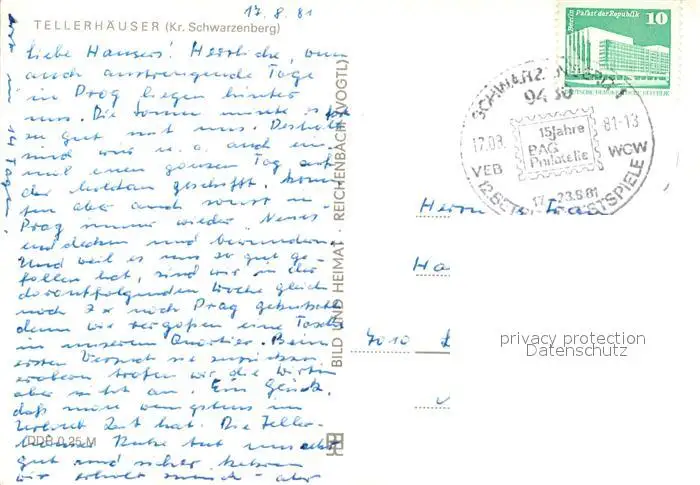 17.8.81
TELLERHÄUSER (Kr. Schwarzenberg)
Liebe Hansers! Herrliche, wenn
auch anstrengende Tage
in Prag liegen hinter
uns. Die Sonne meinte es
so gut mit uns. Deshalb
sind wir u. a. auch ein-
mal einen ganzen Tag auf
der Moldau geschifft. Konn-
ten aber auch sonst in
Prag immer wieder Neues
entdecken und bewundern.
Und weil es uns so gut ge-
fallen hat, sind wir in der
darauffolgenden Woche gleich
noch 2x nach Prag
denn wir vergaßen eine Tasche
in unserem Quartier. Beim
ersten Versuch sie zurückzu-
erobern trafen wir die Wirtin
aber nicht an. Ein Glück,
daß man wenigstens im
Urlaub Zeit hat. Die Teller-
häuser Ruhe tut uns sehr
gut und
wir erholt zurück - aber
in 14 Tagen!
DDR 0,25 M
BILD UND HEIMAT · REICHENBACH (VOGTL)
Berlin Palast der Republik
10
DEUTSCHE DEMOKRATISCHE REPUBLIK
SCHWARZENBERG 1
9430
15 Jahre
BAG
Philatelie
17.08.
81-13
VEB
WCW
12. BETRIEBSFESTSPIELE
17.-23.8.81
Herrn
Ha
7010
privacy protection
Datenschutz